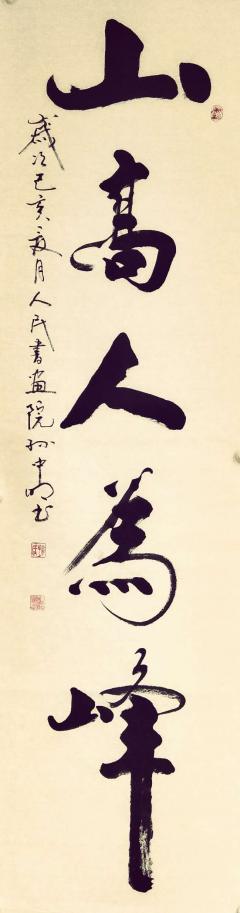 山高人為峰
歲次己亥夏月人民書畫院孙中明书